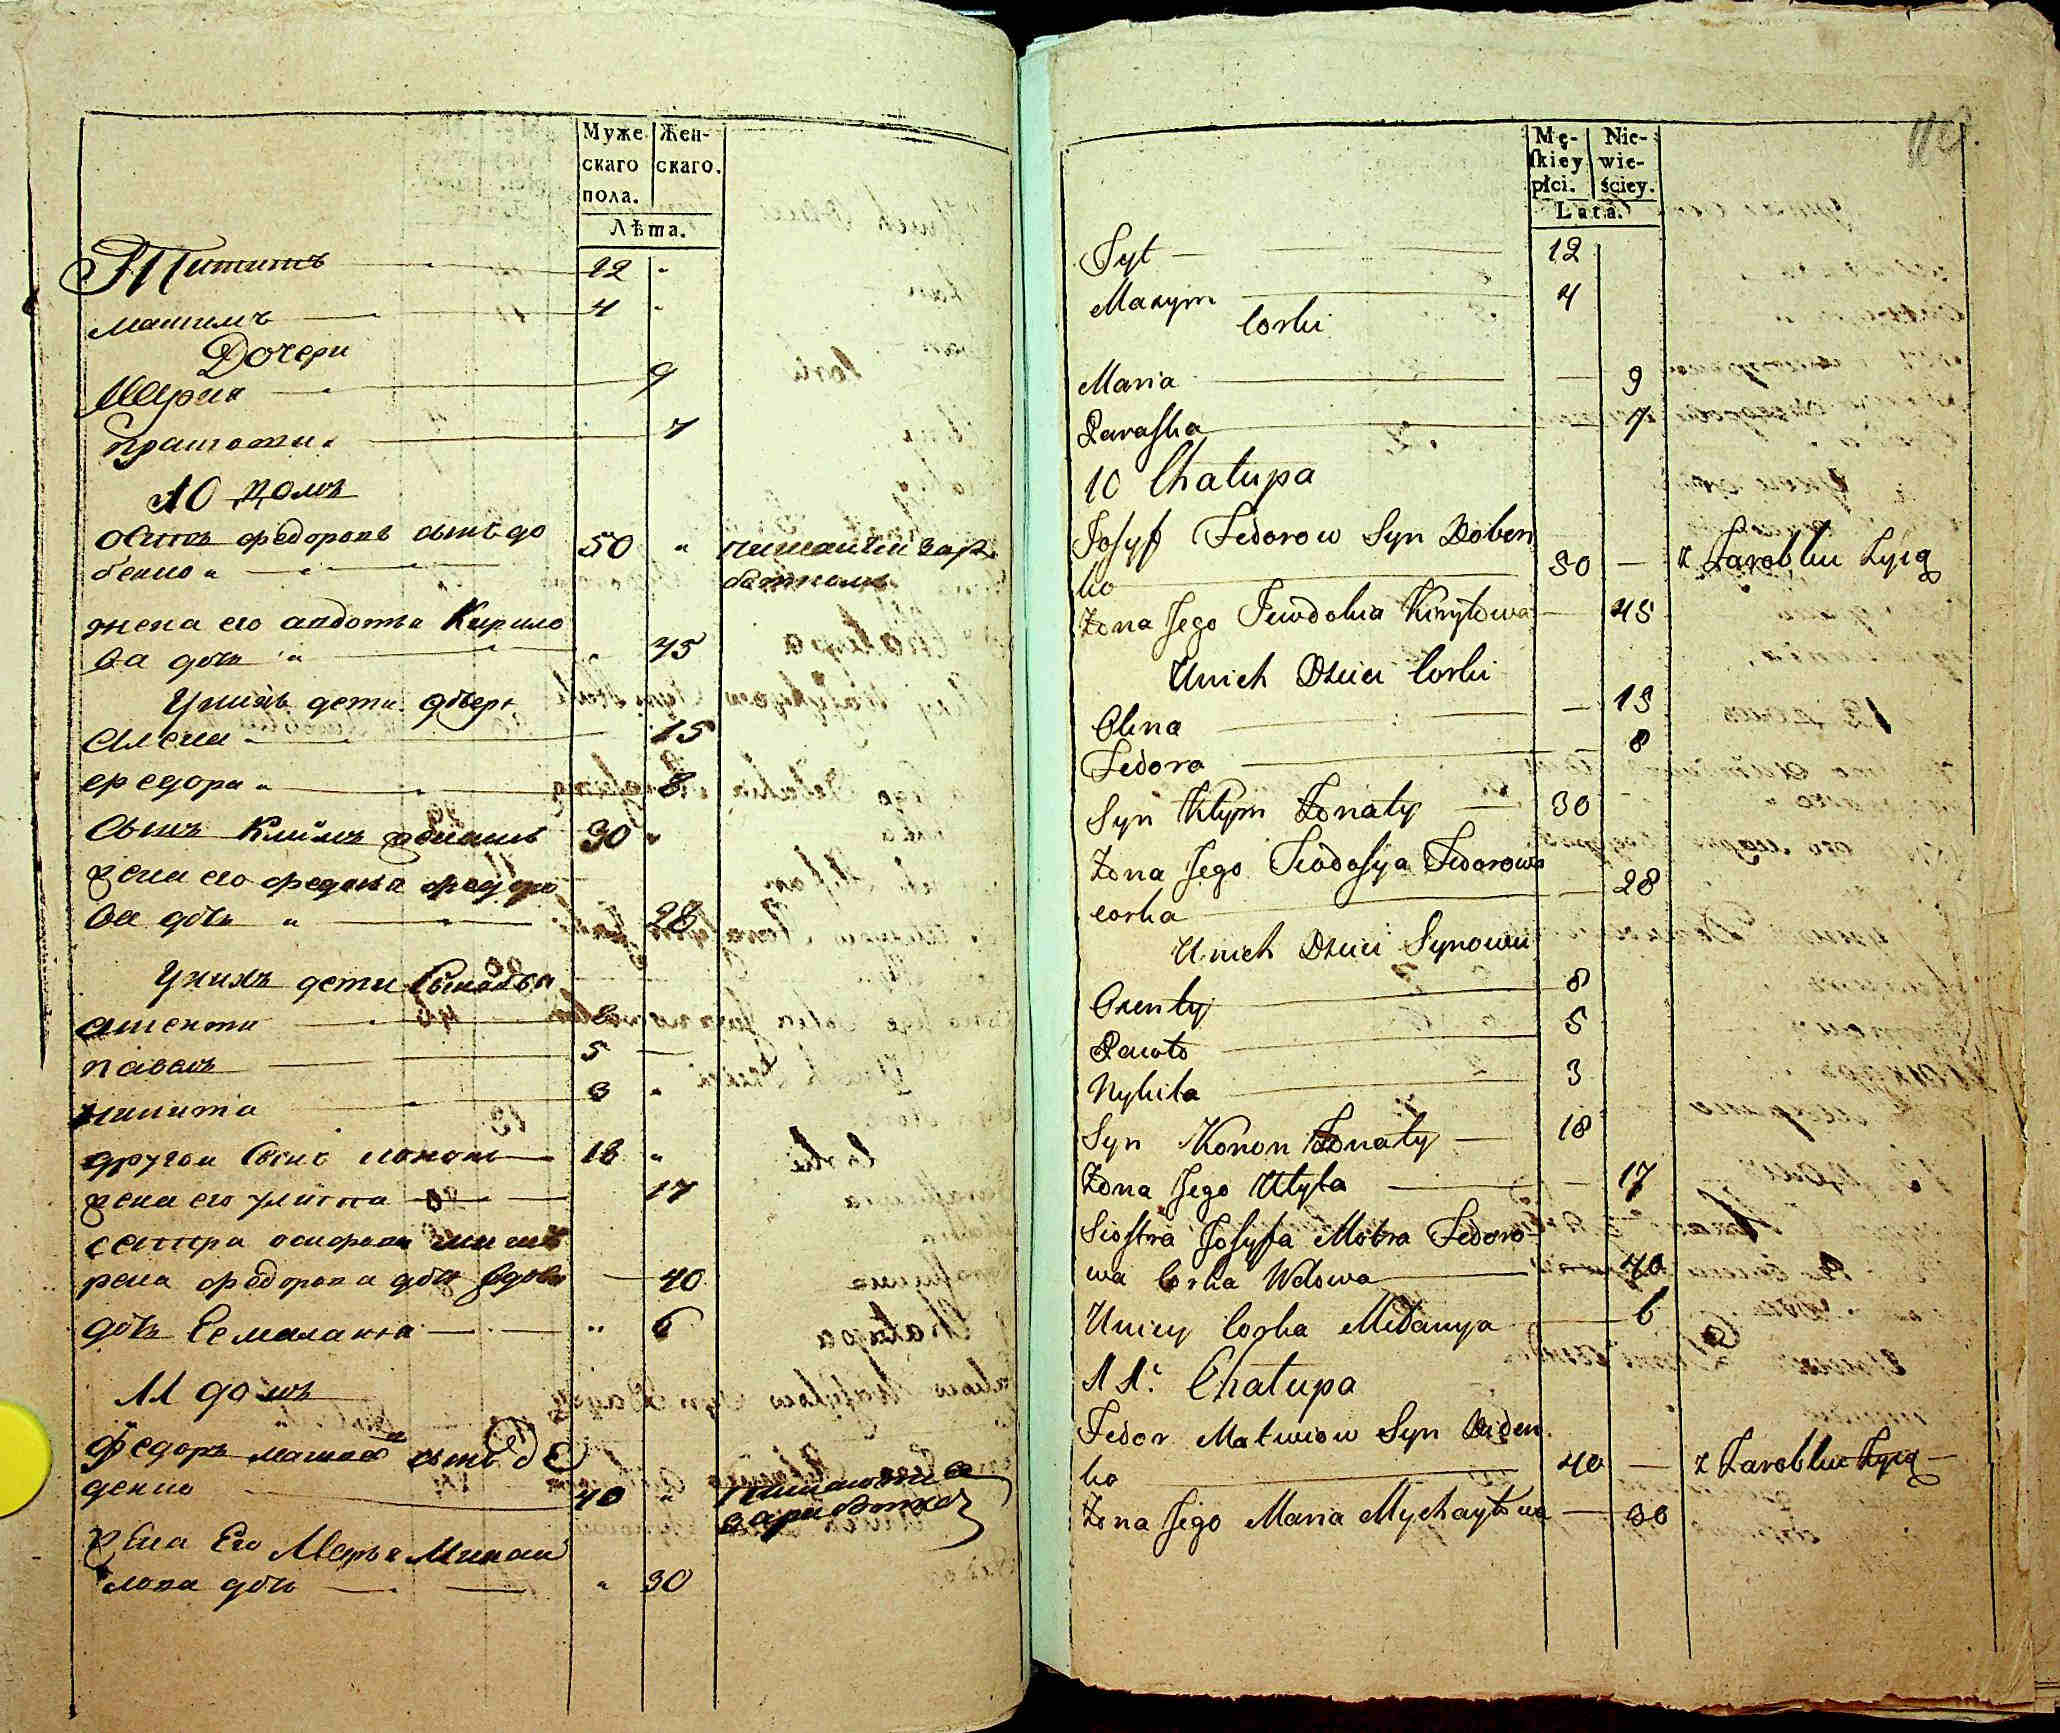 Муже
скаго
пола.
Жен-
скаго.
Лѣта.
Титъ 12
Максимъ 4
Дочери
Марья 9
Прасковия 7
10 домъ
Осипъ Федоровъ сынъ до
бенко 50
жена его авдотья Кирило
ва дочь 45
Унихъ дети дочери
Алена 15
Федора 8
Сынъ Климъ женатъ 30
жена его Федосья Федоро
ва дочь 28
Унихъ дети сыновья
8
павелъ 5
никита 3
другой сынъ конон 18
жена его улита 17
сестра
Федорова дочь вдова 40
дочь Ее маланья 6
11 домъ
Федоръ сынъ де
денко 40
жена Его Марья Михаи
лова дочь 30
Mę-
skiey
płci.
Nie-
wie-
ściey.
Lata.
Tyt 12
Maxym 4
Corki
Maria 9
Paraska 7
10 Chałupa
Josyf Fedorow Syn Doben
ko 50 z Zarobku Żyią
Żona Jego Jewdokia Kiryłowa 45
Unich Dzieci Corki
Olena 15
Fedora 8
Syn Kłym Żonaty 30
Żona Jego Teodosya Fedorowa
corka 28
Unich Dzieci Synowie
Oxenty 8
Pawło 5
Nykita 3
Syn Konon Żonaty 18
Żona Jego Ulyta 17
Siostra Josyfa Motra Fedoro-
wa Corka Wdowa 40
Uniey Corka Mełanya 6
11. Chałupa
Fedor Matwiow Syn Diden
ko 40 z Zarobku Żyią
Żona Jego Maria Mychayłowa 30